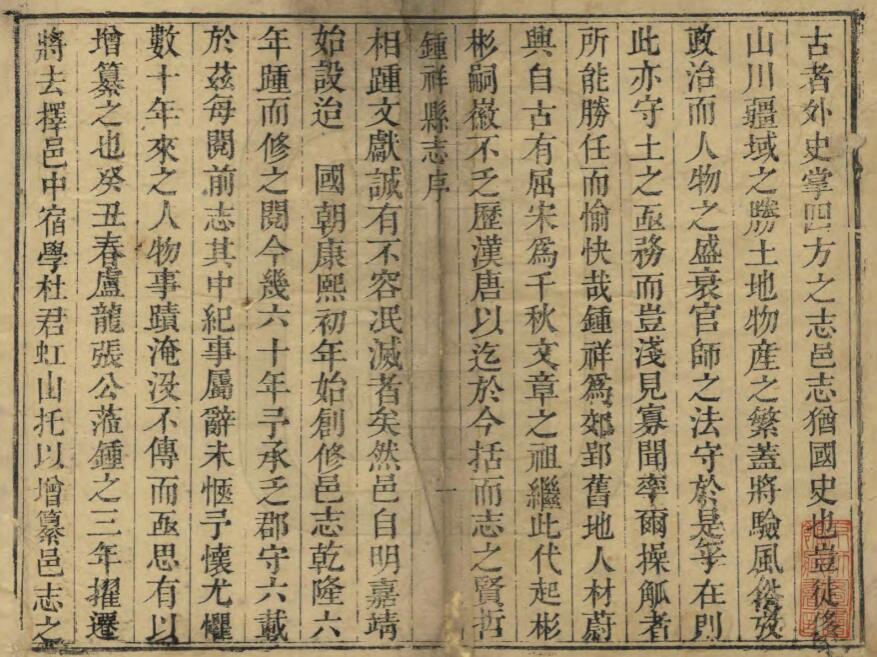 古者外史掌四方之志邑志猶國史也豈徒侈
山川疆域之勝土地物產之繁蓋將驗風俗攷
政治而人物之盛衰官師之法守於是乎在則
此亦守土之亟務而豈淺見寡聞率爾操觚者
所能勝任而愉快哉鍾祥爲郊郢舊地人材蔚
興自古有屈宋爲千秋文章之祖繼此代起彬
彬嗣徽不乏歷漢唐以迄於今括而志之賢哲
鍾祥縣志序
一
相踵文獻誠有不容泯滅者矣然邑自明嘉靖
始設迨 國朝康熙初年始創修邑志乾隆六
年踵而修之閱今幾六十年予承乏郡守六載
於茲每閱前志其中紀事屬辭未愜予懷尤懼
數十年來之人物事蹟淹沒不傳而亟思有以
增纂之也癸丑春盧龍張公蒞鍾之三年擢遷
將去擇邑中宿學杜君虹山托以增纂邑志之